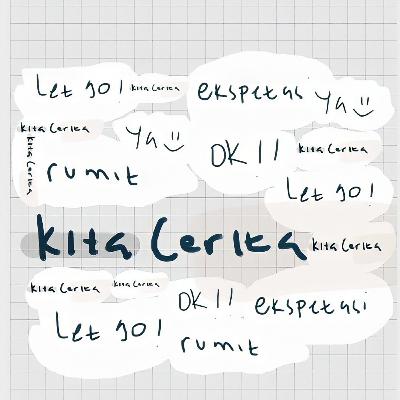 Let go! Kita Cerita ekspetasi Ya
Kita Cerita Ya OK!! Kita Cerita
Kita Cerita
rumit
Let go!
Kita Cerita Kita Cerita
Kita Cerita Kita Cerita OK!! ekspetasi
Let go!
rumit